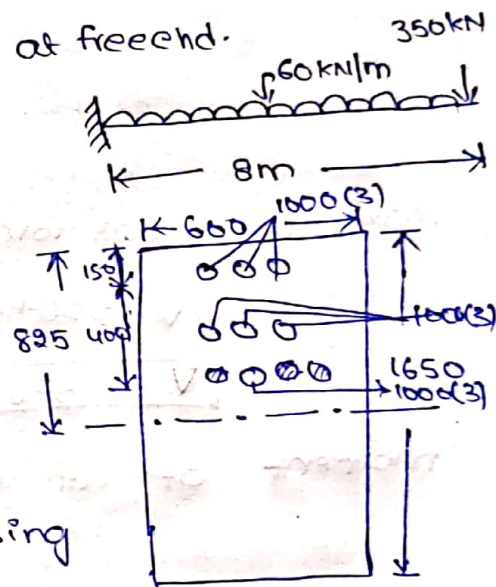 at freeend.
350kN
60kN/m
8m
600
1000(3)
150
825
400
1000(3)
1650
1000(3)
ing